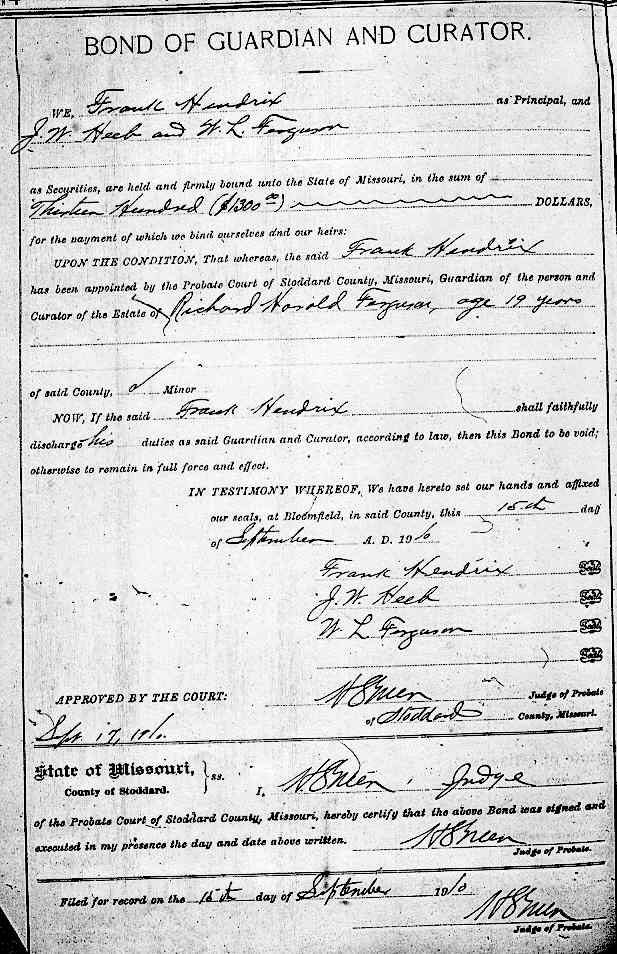 BOND OF GUARDIAN AND CURATOR.
WE, Frank Hendrix as Principal, and
J. W. Heeb and W. L. Ferguson
as Securities, are held and firmly bound unto the State of Missouri, in the sum of
Thirteen Hundred ($1300 00) DOLLARS,
for the payment of which we bind ourselves and our heirs:
UPON THE CONDITION, That whereas, the said Frank Hendrix
has been appointed by the Probate Court of Stoddard County, Missouri, Guardian of the person and
Curator of the Estate of Richard Harold Ferguson, age 19 years
of said County, a Minor
NOW, If the said Frank Hendrix shall faithfully
discharge his duties as said Guardian and Curator, according to law, then this Bond to be void;
otherwise to remain in full force and effect.
IN TESTIMONY WHEREOF, We have hereto set our hands and affixed
our seals, at Bloomfield, in said County, this 15th day
of September A. D. 1910
Frank Hendrix Seal
J. W. Heeb Seal
W. L. Ferguson Seal
Seal
APPROVED BY THE COURT: Judge of Probate
of Stoddard County, Missouri.
Sept. 17, 1910.
State of Missouri,
County of Stoddard. } ss. I, Judge
of the Probate Court of Stoddard County, Missouri, hereby certify that the above Bond was signed and
executed in my presence the day and date above written.
Judge of Probate.
Filed for record on the 15th day of September 1910
Judge of Probate.